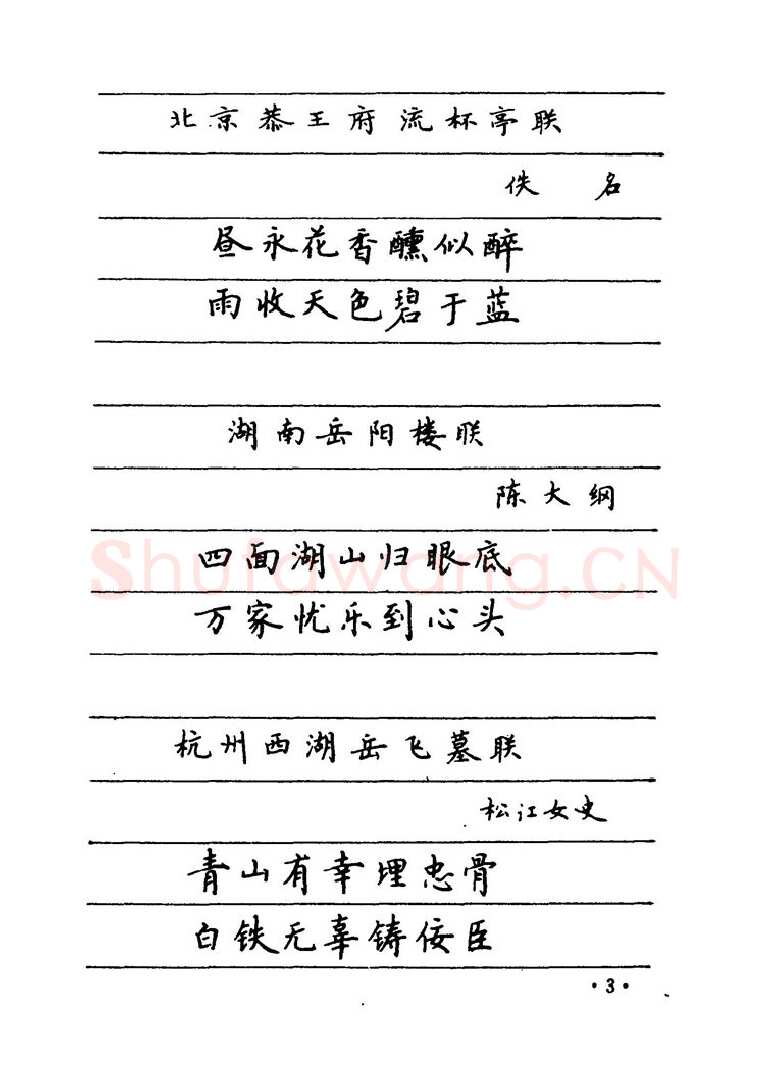 北京恭王府流杯亭联
佚名
昼永花香醺似醉
雨收天色碧于蓝
湖南岳阳楼联
陈大纲
四面湖山归眼底
万家忧乐到心头
Shufawang.CN
杭州西湖岳飞墓联
松江女史
青山有幸埋忠骨
白铁无辜铸佞臣
·3·